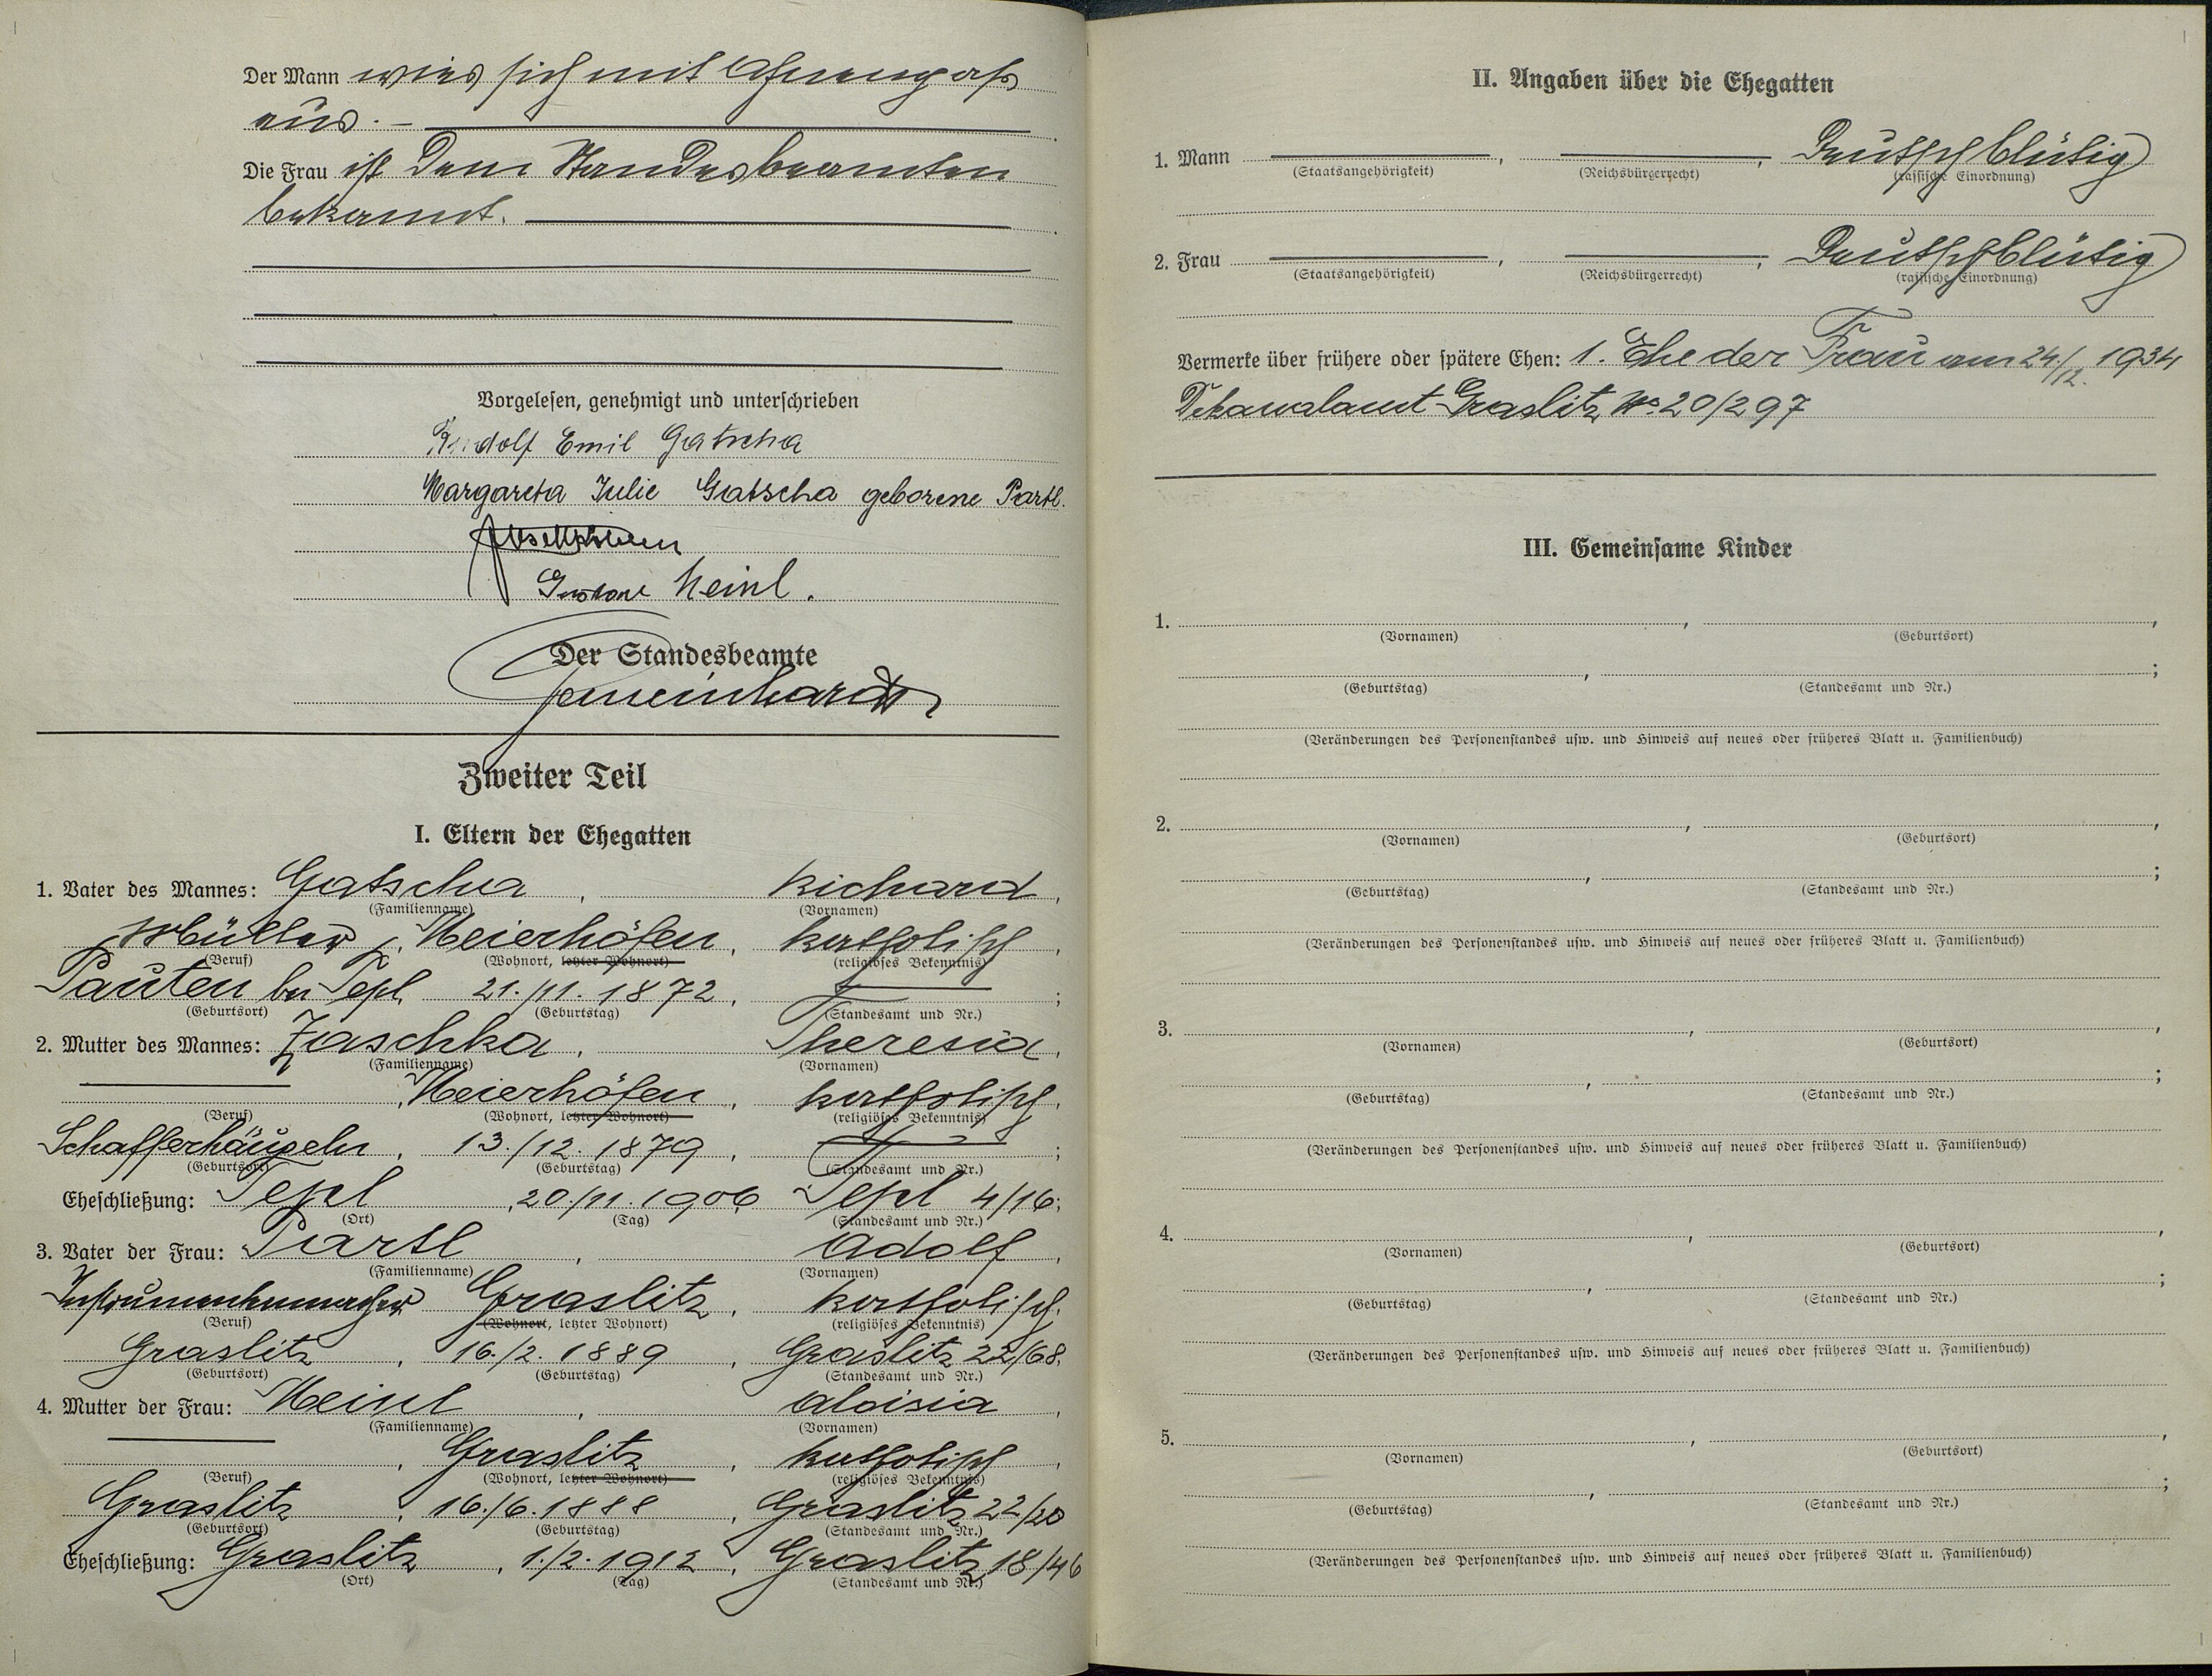 Der Mann wies sich mit Ahnenpaß
aus. –
Die Frau ist dem Standesbeamten
bekannt.
Vorgelesen, genehmigt und unterschrieben
Rudolf Emil Gatscha
Margareta Julie Gatscha geborene Partl.
Gustav Meinl.
Der Standesbeamte
Gemeinhardt
Zweiter Teil
I. Eltern der Ehegatten
1. Vater des Mannes: Gatscha, Richard,
(Familienname) (Vornamen)
Müller, Meierhöfen, katholisch,
(Beruf) (Wohnort, letzter Wohnort) (religiöses Bekenntnis)
Pauten bei Tepl, 21./11. 1872, — ;
(Geburtsort) (Geburtstag) (Standesamt und Nr.)
2. Mutter des Mannes: Zaschka, Theresia,
(Familienname) (Vornamen)
—, Meierhöfen, katholisch,
(Beruf) (Wohnort, letzter Wohnort) (religiöses Bekenntnis)
Schafferhäuseln, 13./12. 1879, — ;
(Geburtsort) (Geburtstag) (Standesamt und Nr.)
Eheschließung: Tepl, 20./11. 1906 Tepl 4/16;
(Ort) (Tag) (Standesamt und Nr.)
3. Vater der Frau: Partl, Adolf,
(Familienname) (Vornamen)
Instrumentenmacher Graslitz, katholisch,
(Beruf) (Wohnort, letzter Wohnort) (religiöses Bekenntnis)
Graslitz, 16./2. 1889, Graslitz 22/68,
(Geburtsort) (Geburtstag) (Standesamt und Nr.)
4. Mutter der Frau: Meinl, Aloisia,
(Familienname) (Vornamen)
—, Graslitz, katholisch,
(Beruf) (Wohnort, letzter Wohnort) (religiöses Bekenntnis)
Graslitz, 16./6. 1888, Graslitz 22/20
(Geburtsort) (Geburtstag) (Standesamt und Nr.)
Eheschließung: Graslitz, 1./2. 1912, Graslitz 18/46
(Ort) (Tag) (Standesamt und Nr.)
II. Angaben über die Ehegatten
1. Mann —, —, Deutschblütig
(Staatsangehörigkeit) (Reichsbürgerrecht) (rassische Einordnung)
2. Frau —, —, Deutschblütig
(Staatsangehörigkeit) (Reichsbürgerrecht) (rassische Einordnung)
Vermerke über frühere oder spätere Ehen: 1. Ehe der Frau am 24./12. 1934
Dekanalamt Graslitz Nr. 20/297
III. Gemeinsame Kinder
1. , ,
(Vornamen) (Geburtsort)
, ;
(Geburtstag) (Standesamt und Nr.)
(Veränderungen des Personenstandes usw. und Hinweis auf neues oder früheres Blatt u. Familienbuch)
2. , ,
(Vornamen) (Geburtsort)
, ;
(Geburtstag) (Standesamt und Nr.)
(Veränderungen des Personenstandes usw. und Hinweis auf neues oder früheres Blatt u. Familienbuch)
3. , ,
(Vornamen) (Geburtsort)
, ;
(Geburtstag) (Standesamt und Nr.)
(Veränderungen des Personenstandes usw. und Hinweis auf neues oder früheres Blatt u. Familienbuch)
4. , ,
(Vornamen) (Geburtsort)
, ;
(Geburtstag) (Standesamt und Nr.)
(Veränderungen des Personenstandes usw. und Hinweis auf neues oder früheres Blatt u. Familienbuch)
5. , ,
(Vornamen) (Geburtsort)
, ;
(Geburtstag) (Standesamt und Nr.)
(Veränderungen des Personenstandes usw. und Hinweis auf neues oder früheres Blatt u. Familienbuch)